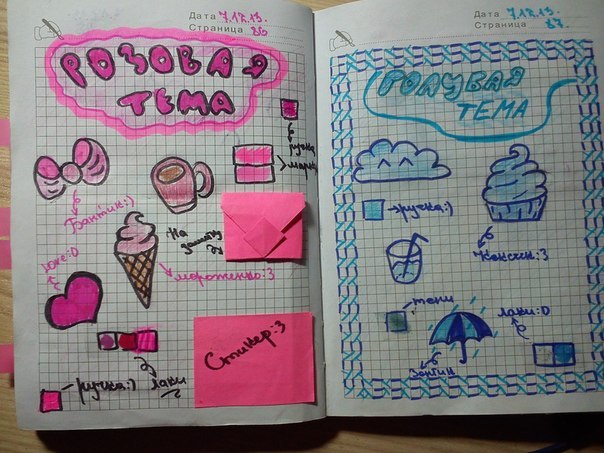 Дата 7.12.13.
Страница 86
РОЗОВАЯ
ТЕМА
ручка
Бантик:)
На
заметку
мороженко:3
ручка:)
лаки
Стикер:3
Дата 7.12.13.
Страница 87.
ГОЛУБАЯ
ТЕМА
ручка:)
Кексик:3
тени
лаки:D
Зонтик